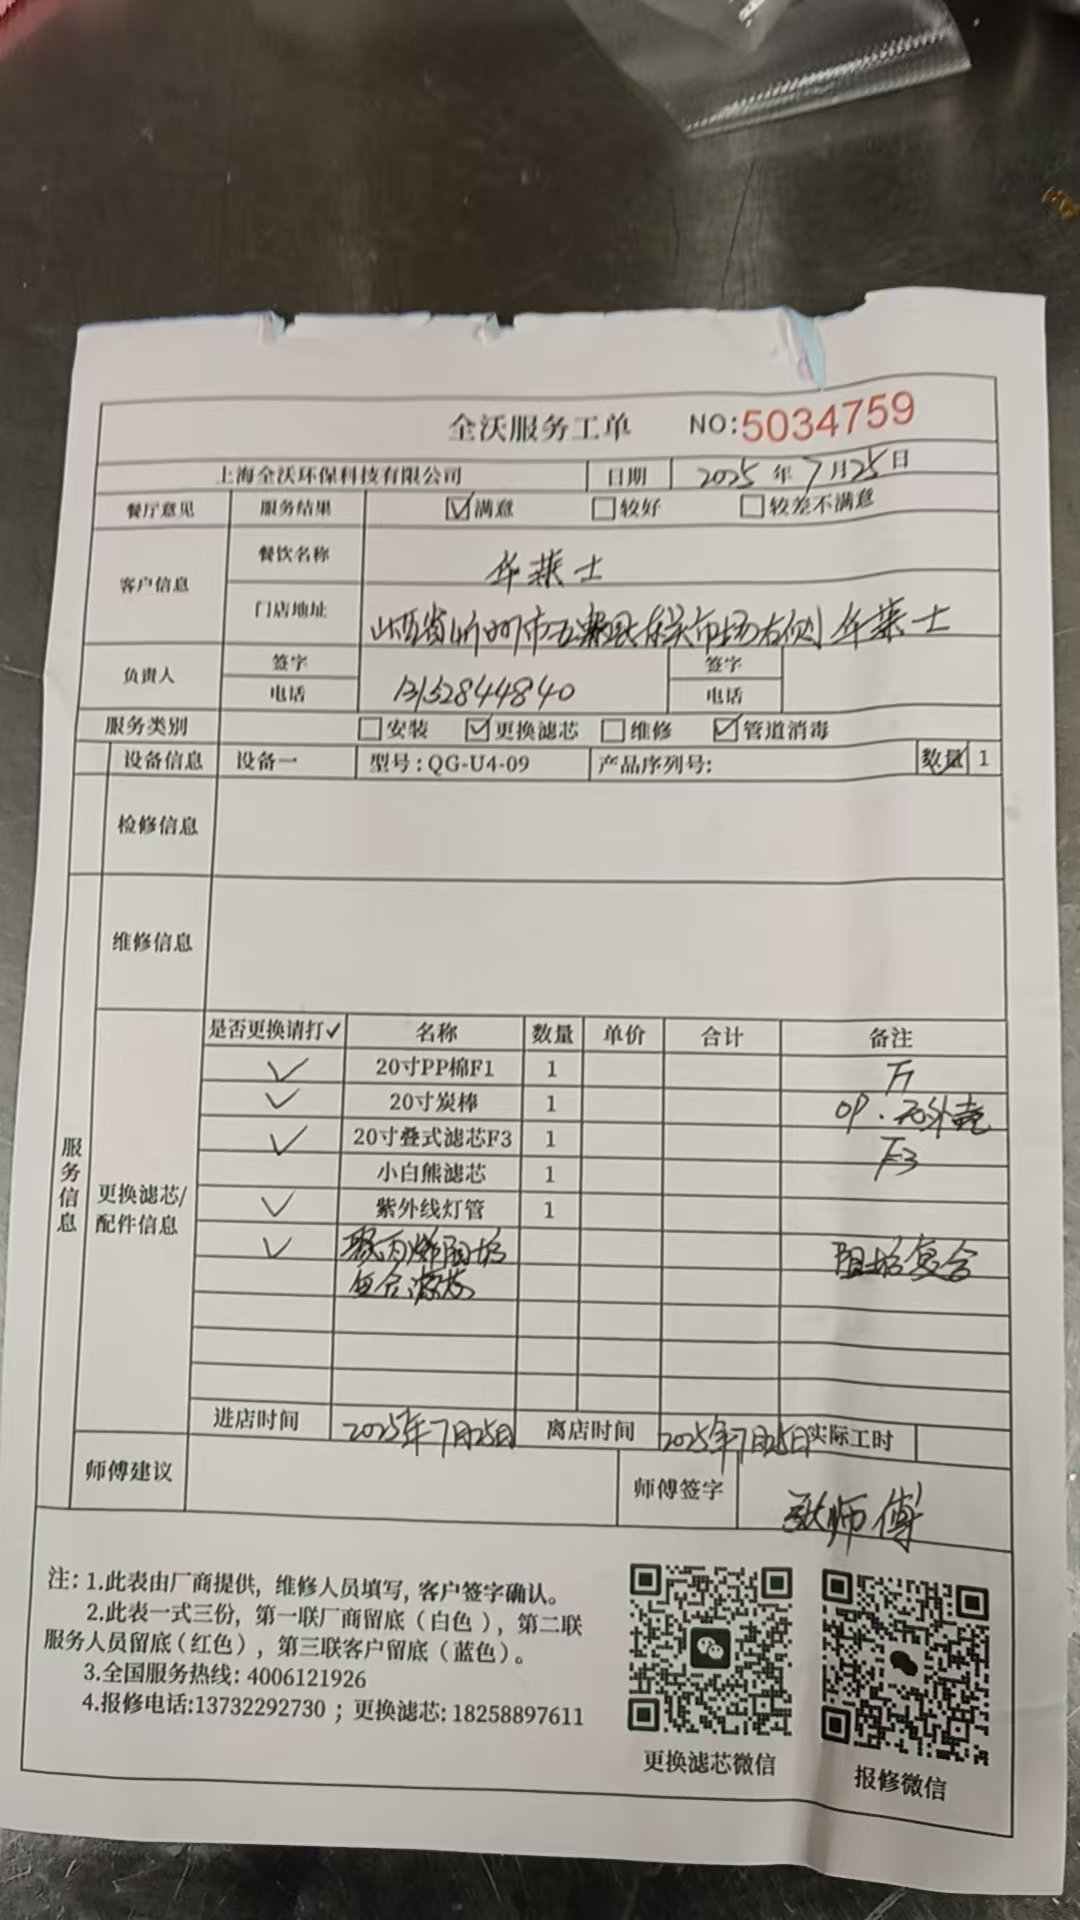 全沃服务工单 NO:5034759
上海全沃环保科技有限公司 日期 2025年7月25日
餐厅意见 服务结果 ☑满意 □较好 □较差不满意
客户信息 餐饮名称 华莱士
门店地址 山西省忻州市五寨县东关市场右侧华莱士
负责人 签字 签字
电话 13152844840 电话
服务类别 □安装 ☑更换滤芯 □维修 ☑管道消毒
设备信息 设备一 型号:QG-U4-09 产品序列号: 数量 1
检修信息
维修信息
服务信息
更换滤芯/配件信息
是否更换请打✓ 名称 数量 单价 合计 备注
✓ 20寸PP棉F1 1 F1
✓ 20寸炭棒 1 OP.无外壳
✓ 20寸叠式滤芯F3 1 F3
小白熊滤芯 1
✓ 紫外线灯管 1
✓ 聚丙烯阻垢 阻垢复合
复合滤芯
进店时间 2025年7月25日 离店时间 2025年7月25日 实际工时
师傅建议 师傅签字 师傅
注:1.此表由厂商提供,维修人员填写,客户签字确认。
2.此表一式三份,第一联厂商留底(白色),第二联
服务人员留底(红色),第三联客户留底(蓝色)。
3.全国服务热线:4006121926
4.报修电话:13732292730;更换滤芯:18258897611
更换滤芯微信 报修微信